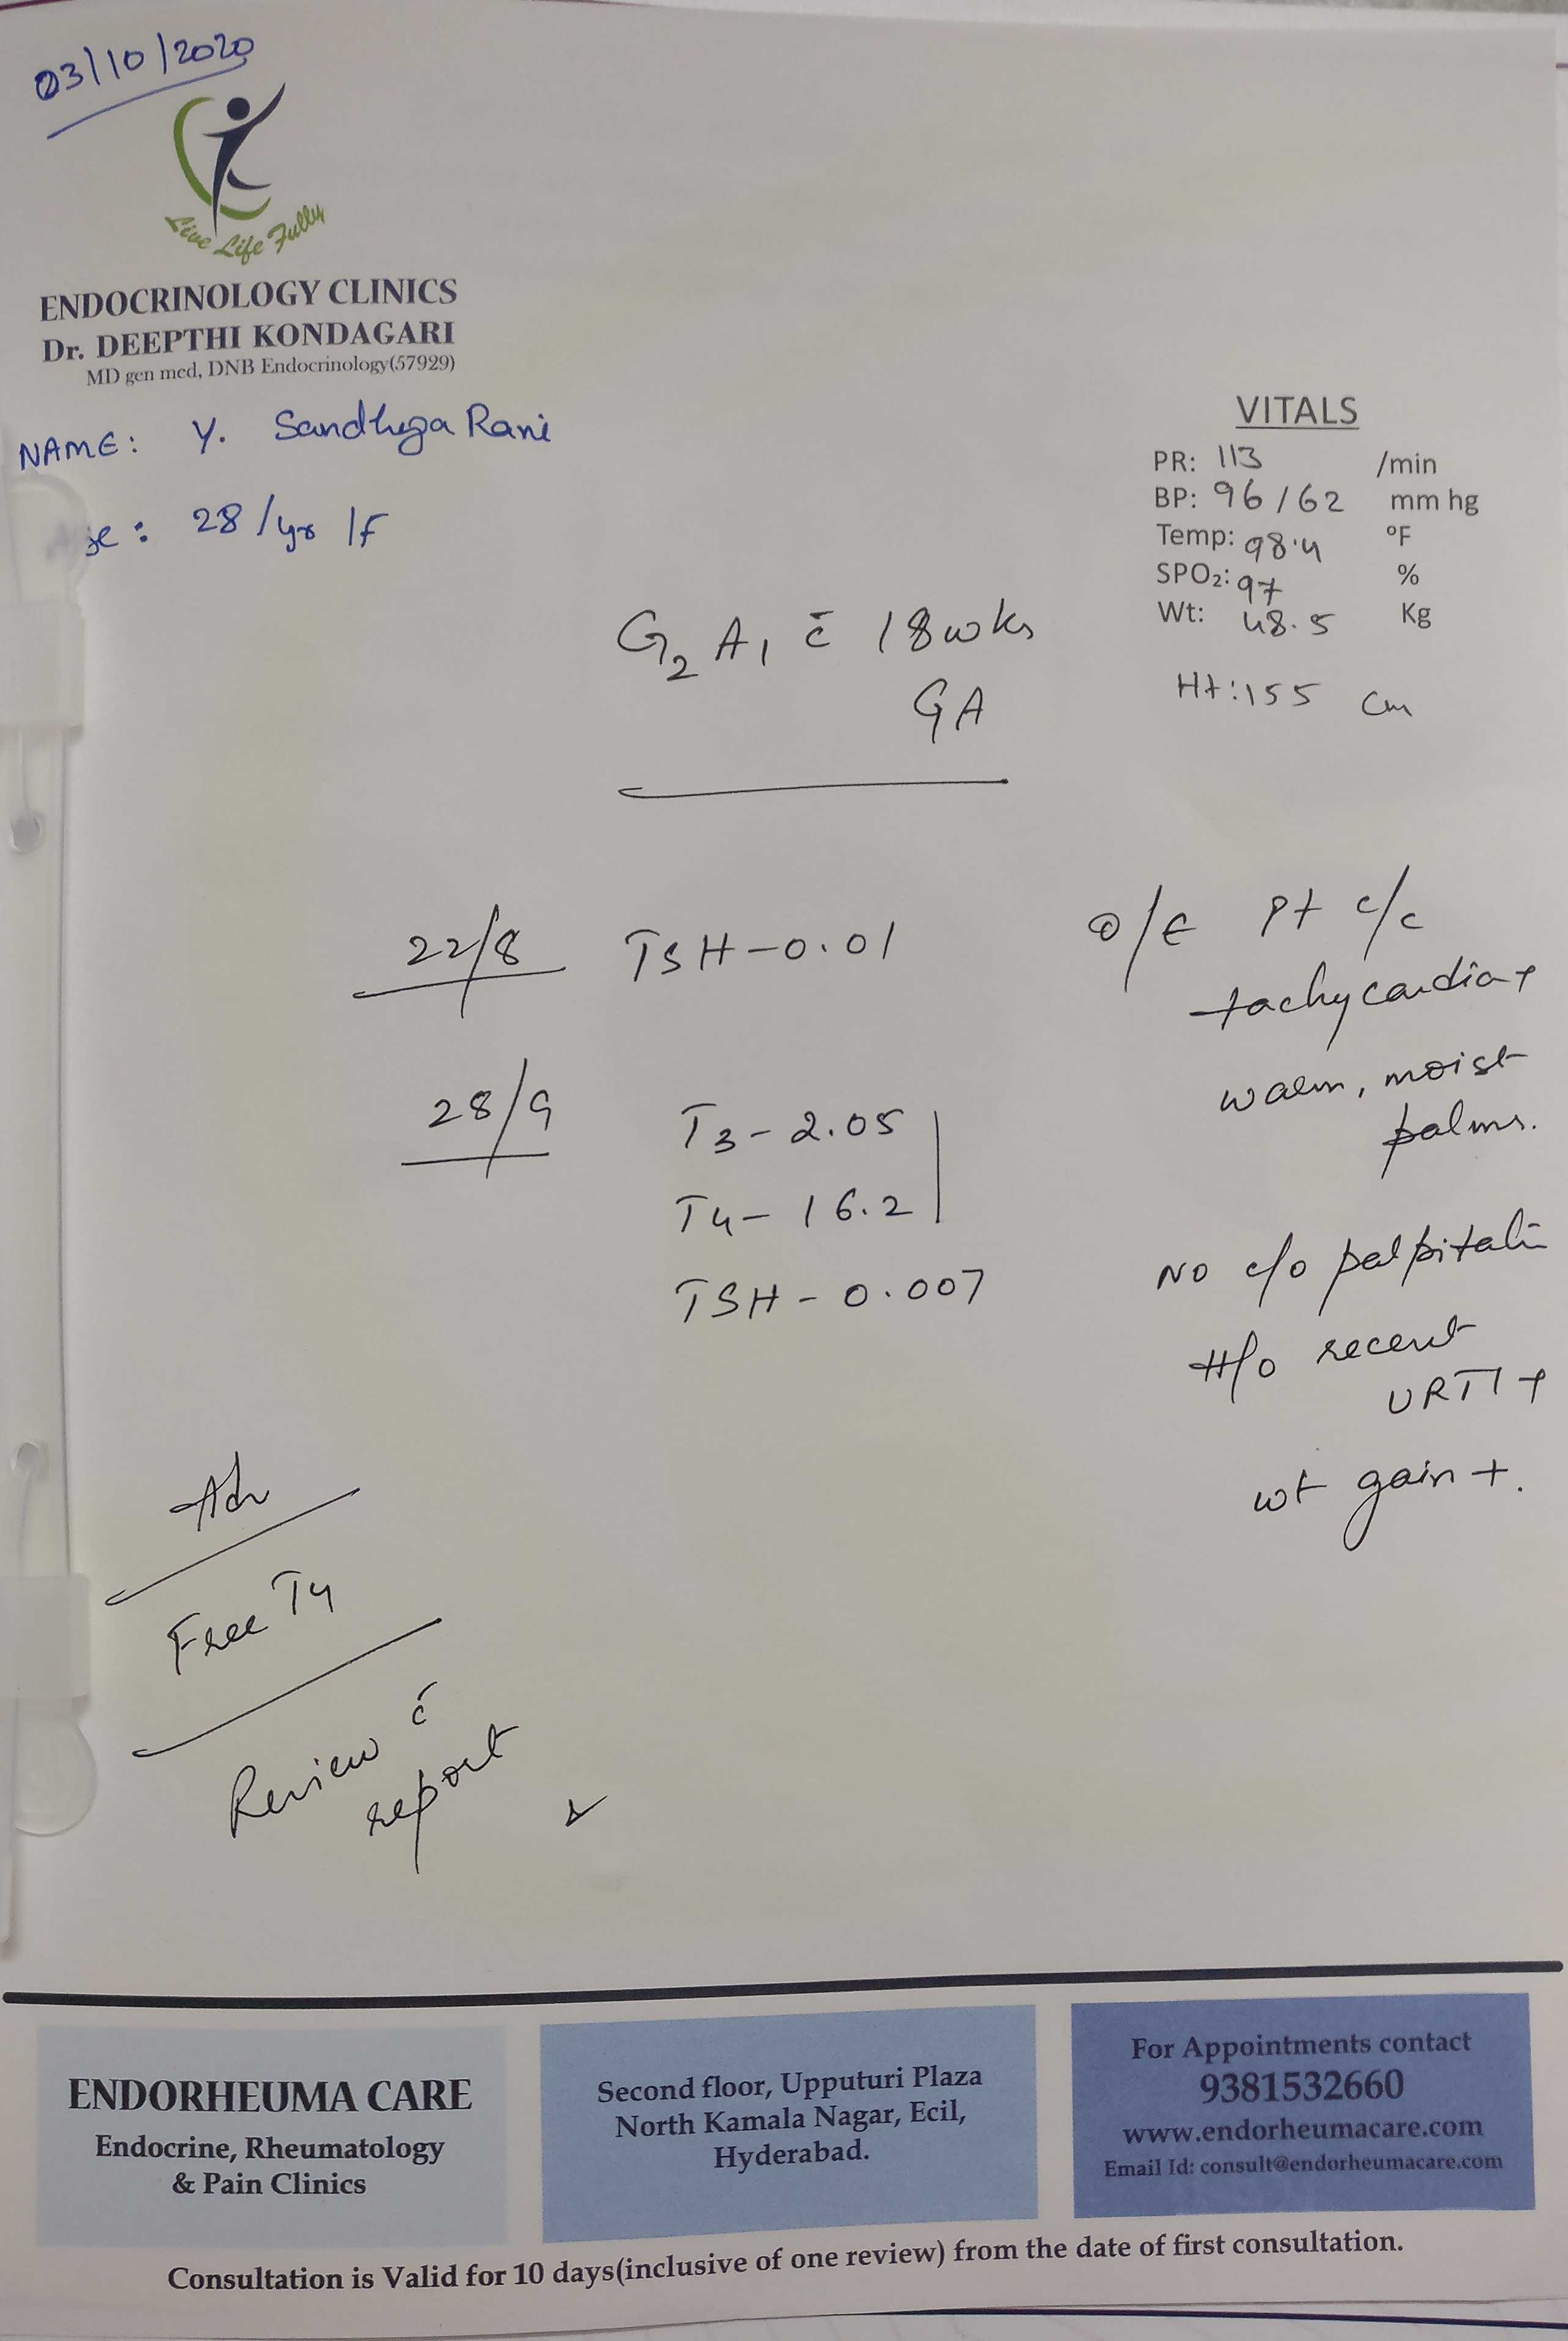 03/10/2020
Live Life Fully
ENDOCRINOLOGY CLINICS
Dr. DEEPTHI KONDAGARI
MD gen med, DNB Endocrinology(57929)
NAME: Y. Sandhya Rani
Age: 28/yrs/F
VITALS
PR: 113 /min
BP: 96/62 mm hg
Temp: 98.4 °F
SPO₂: 97 %
Wt: 48.5 Kg
Ht: 155 cm
G₂ A₁ c̄ 18wks
GA
22/8 TSH - 0.01
28/9 T3 - 2.05
T4 - 16.2
TSH - 0.007
O/E Pt c/c
tachycardia +
warm, moist
palms.
NO c/o palpitati
H/o recent
URTI +
wt gain +.
Adv
Free T4
Review c̄
report
ENDORHEUMA CARE
Endocrine, Rheumatology
& Pain Clinics
Second floor, Upputuri Plaza
North Kamala Nagar, Ecil,
Hyderabad.
For Appointments contact
9381532660
www.endorheumacare.com
Email Id: consult@endorheumacare.com
Consultation is Valid for 10 days(inclusive of one review) from the date of first consultation.